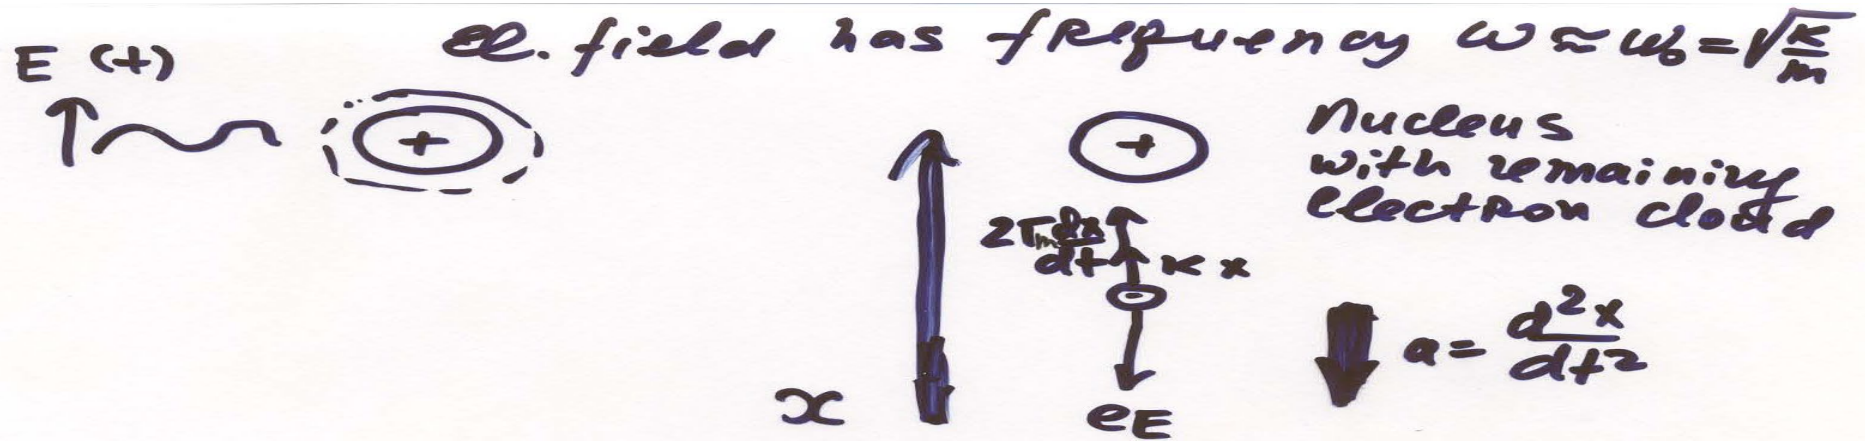 El. field has frequency ω ≈ ω₀ = √(K/m)
E (t)
+
+
Nucleus
with remaining
electron cloud
2Γm dx/dt
K x
a = d²x/dt²
x
eE